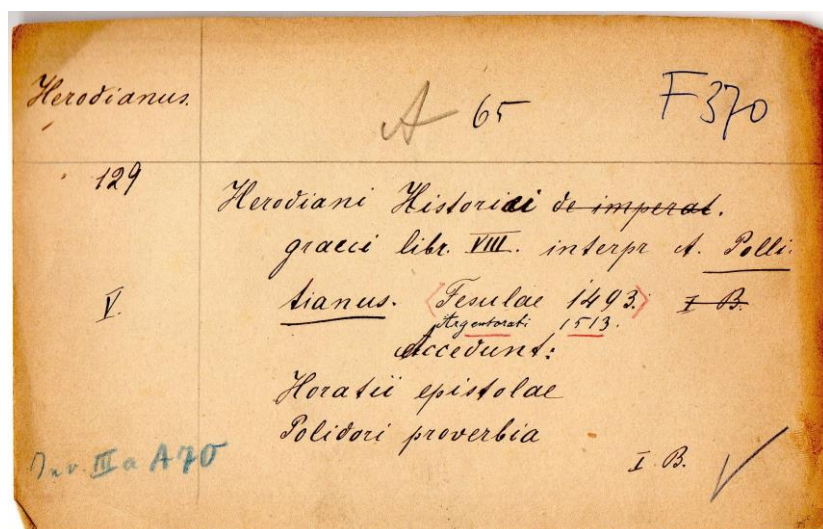 Herodianus.
A 65
F370
129
Herodiani Historici de imperat.
graeci libr. VIII. interpr A. Polli-
V.
tianus. (Fesulae 1493.) I B.
Argentorati 1513.
Accedunt:
Horatii epistolae
Polidori proverbia
Inv. III a A70
I B.